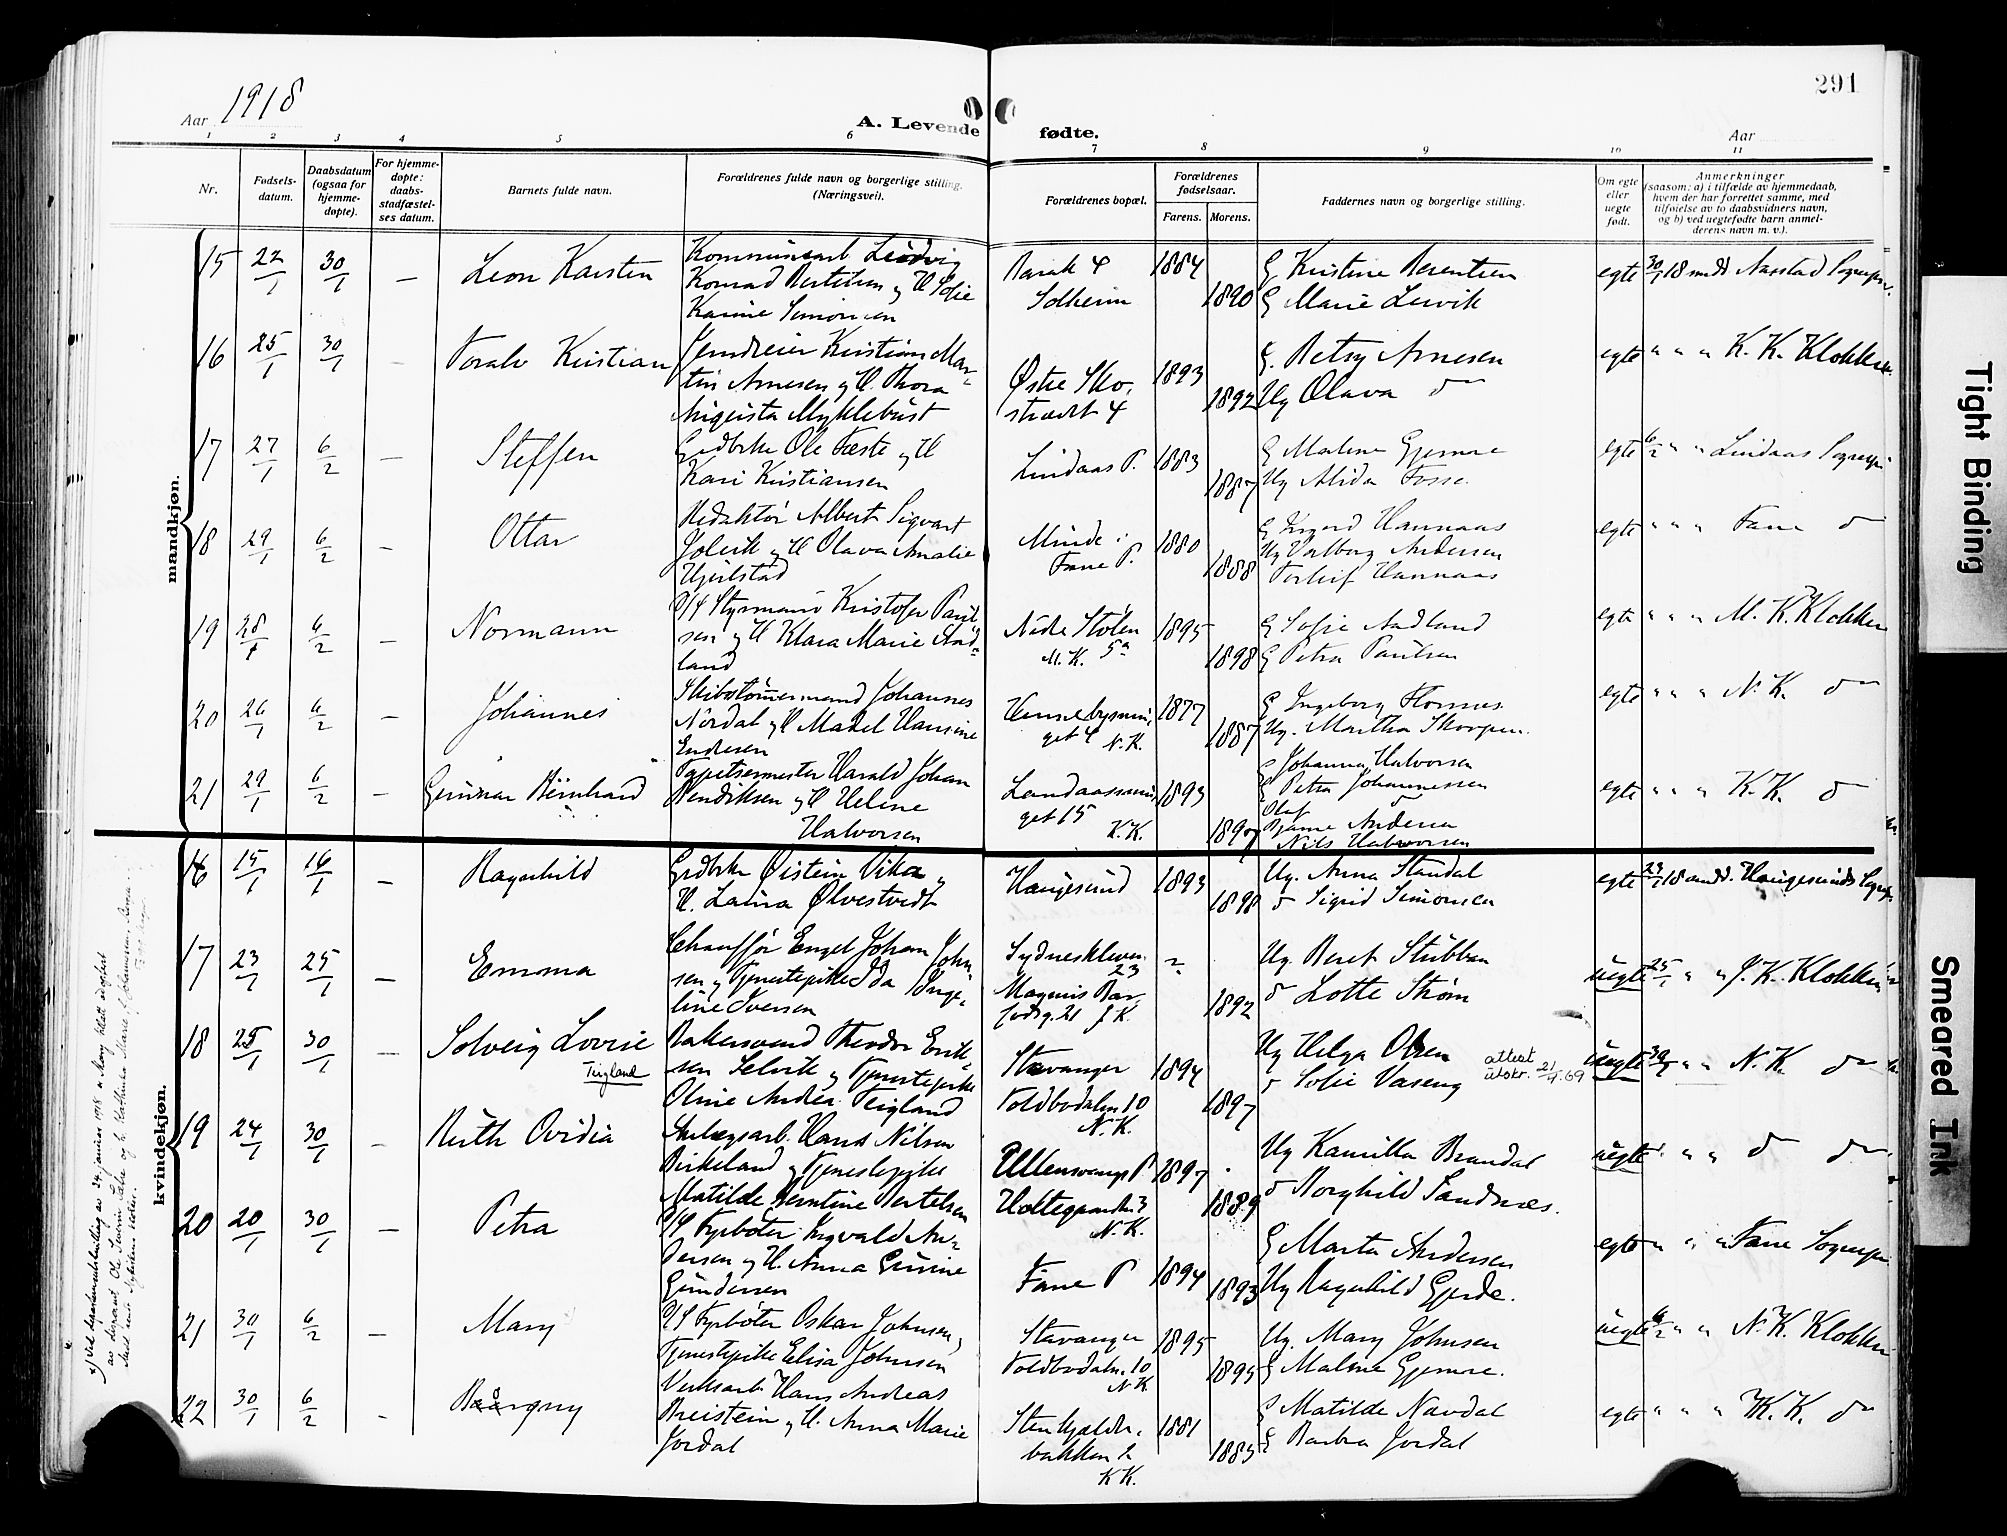 Aar 1918
A. Levende fødte.
Aar
291
1 2 3 4 5 6 7 8 9 10 11
Nr.
Fødsels-
datum.
Daabsdatum
(ogsaa for
hjemme-
døpte).
For hjemme-
døpte:
daabs-
stadfæstel-
ses datum.
Barnets fulde navn.
Forældrenes fulde navn og borgerlige stilling.
(Næringsvei).
Forældrenes bopæl.
Forældrenes
fødselsaar.
Farens. Morens.
Faddernes navn og borgerlige stilling.
Om egte
eller
uegte
født.
Anmerkninger
(saasom: a) i tilfælde av hjemmedaab,
hvem der har forrettet samme, med
tilføielse av to daabsvidners navn,
og b) ved uegtefødte barn anmel-
derens navn m. v.).
mandkjøn.
15 22/1 30/1 — Leon Karsten
Kommunearb Ludvig
Konrad Bertelsen og H Sofie
Karine Simonsen
Barak 4
Solheim
1884
1890
G Kristine Berentsen
G Marie Lervik
egte 30/1 18 medt Aasstad Sognepr.
16 25/1 30/1 — Toralv Kristian
Jerndreier Kristian Mar-
tin Arnesen og H. Thora
Augusta Myklebust
Østre Sko.
strædt 4
1893
1892
G. Betsy Arnesen
Ug Olava do
egte " " " K. K. Klokker
17 27/1 6/2 — Steffen
Grdbrk Ole Fæste og H
Kari Kristiansen
Lindaas P.
1883
1887
G Malene Gjemre
Ug Alida Fosse
egte 6/2 " " Lindaas Sognepr
18 29/1 6/2 — Ottar
Redaktør Albert Sigvart
Jolvik og H Olava Amalie
Hjertstad
Minde i
Fane P.
1880
1888
G Ingvord Hannaas
Ug Valborg Andersen
Torleif Hannaas
egte " " " Fane do
19 28/1 6/2 — Normann
D/S Styrmand Kristofer Paul-
sen og H Klara Marie Aad-
land
Nedre Stølen
M. K. 5a
1895
1898
G Sofie Aadland
G Petra Paulsen
egte " " " M. K. Klokker
20 26/1 6/2 — Johannes
Skibstømmermand Johannes
Nordal og H Madel Hansine
Endresen
Hennebysmu
get 4 N. K.
1877
1887
G Ingeborg Flornes
Ug. Martha Skorpen.
egte " " " N. K. do
21 29/1 6/2 — Gunnar Bernhard
Tapetsermester Harald Johan
Hendriksen og H Helene
Halvorsen
Landaassmu
get 15
K. K.
1893
1897
G Johanna Halvorsen
G Petra Johannessen
Olaf do
Bjarne Andersen
Nils Halvorsen
egte " " " K. K. do
kvindekjøn.
16 15/1 16/1 — Ragnhild
Grdbrk Øistein Vika og
H. Laura Ølvestvedt
Haugesund
1893
1898
Ug. Anna Standal
do Sigrid Simonsen
egte 23/1 18 medd. Haugesunds Sognepr
17 23/1 25/1 — Emma
Chauffør Engel Johan John-
sen og Tjenestepike Ida Inge-
line Iversen
Sydneskleven
23
Magnus Bar-
fodsg. 21 J. K.
?
1892
Ug. Beret Stubban
do Lotte Strøm
uegte 25/1 " " J. K. Klokker
18 25/1 30/1 — Solveig Lovise
Teigland
Bakersvend Theodor Erik-
sen Selvik og Tjenestepike
Oline Andrea Teigland
Stavanger
Toldbodalm 10
N. K.
1894
1897
Ug Helga Olsen
do Sofie Vaseng
attest
utskr. 21/4 69
uegte 30/1 " " N. K. do
19 24/1 30/1 — Ruth Ovidia
Anlægsarb. Hans Nilsen
Birkeland og Tjenestepike
Matilde Berntine Bertelsen
Ullensvangs P
Holtegaardn. 3
N. K.
1897
1889
Ug Kamilla Brandal
do Borghild Sandnæs.
uegte " " " do do
20 20/1 30/1 — Petra
D/S Fyrbøter Ingvald An-
dersen og H. Anna Gurine
Gundersen
Fane P
1894
1893
G Marta Andersen
Ug Ragnhild Gjerde.
egte " " " Fane Sognepr
21 30/1 6/2 — Mary
D/S Fyrbøter Oskar Johnsen og
Tjenestepike Elisa Johnsen
Stavanger
Toldbodalm. 10
N. K.
1895
1895
Ug. Mary Johnsen
G Malene Gjemre.
uegte 6/2 " " N. K. Klokker
22 30/1 6/2 - Baargny
Verksarb. Hans Andreas
Breistein og H. Anna Marie
Jordal
Stenkjeldr-
bakken 2
K K.
1881
1883
G Matilde Navdal
G Barbra Jordal
egte " " " K. K. do
Tight Binding
Smeared Ink